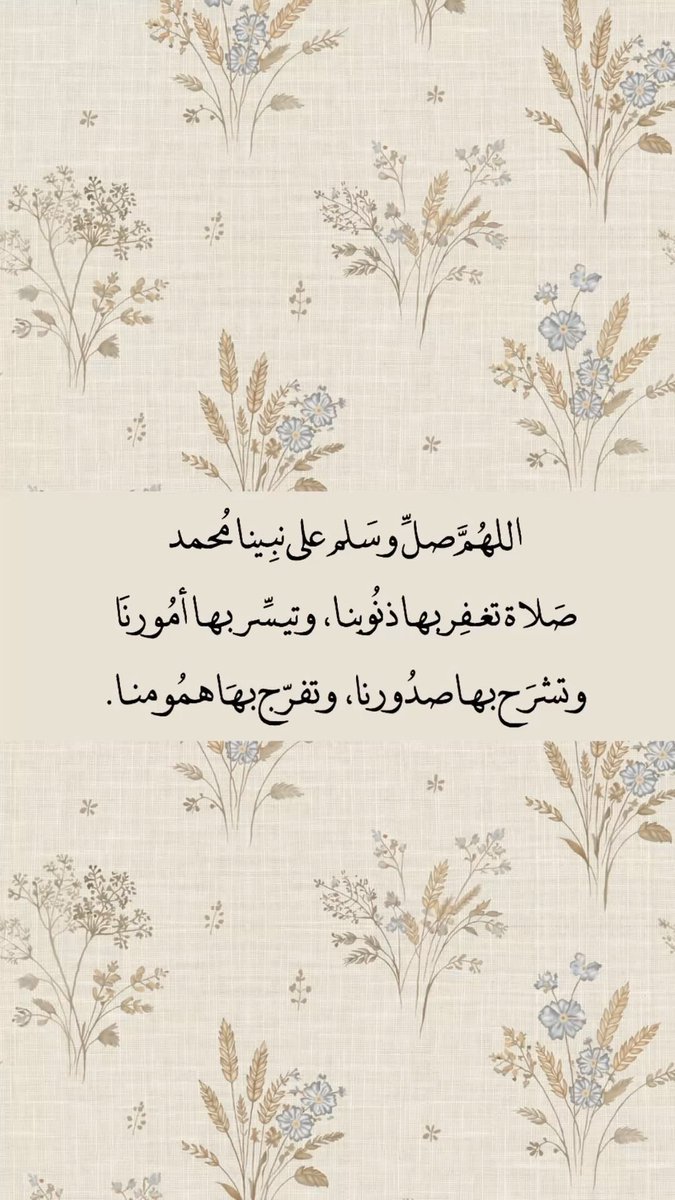 اللهُمَّ صلِّ وسَلم على نبِينا مُحمد
صَلاة تغفِر بها ذنُوبنا، وتيسِّر بها أمُورنَا
وتشرَح بها صدُورنا، وتفرّج بهَا همُومنا.